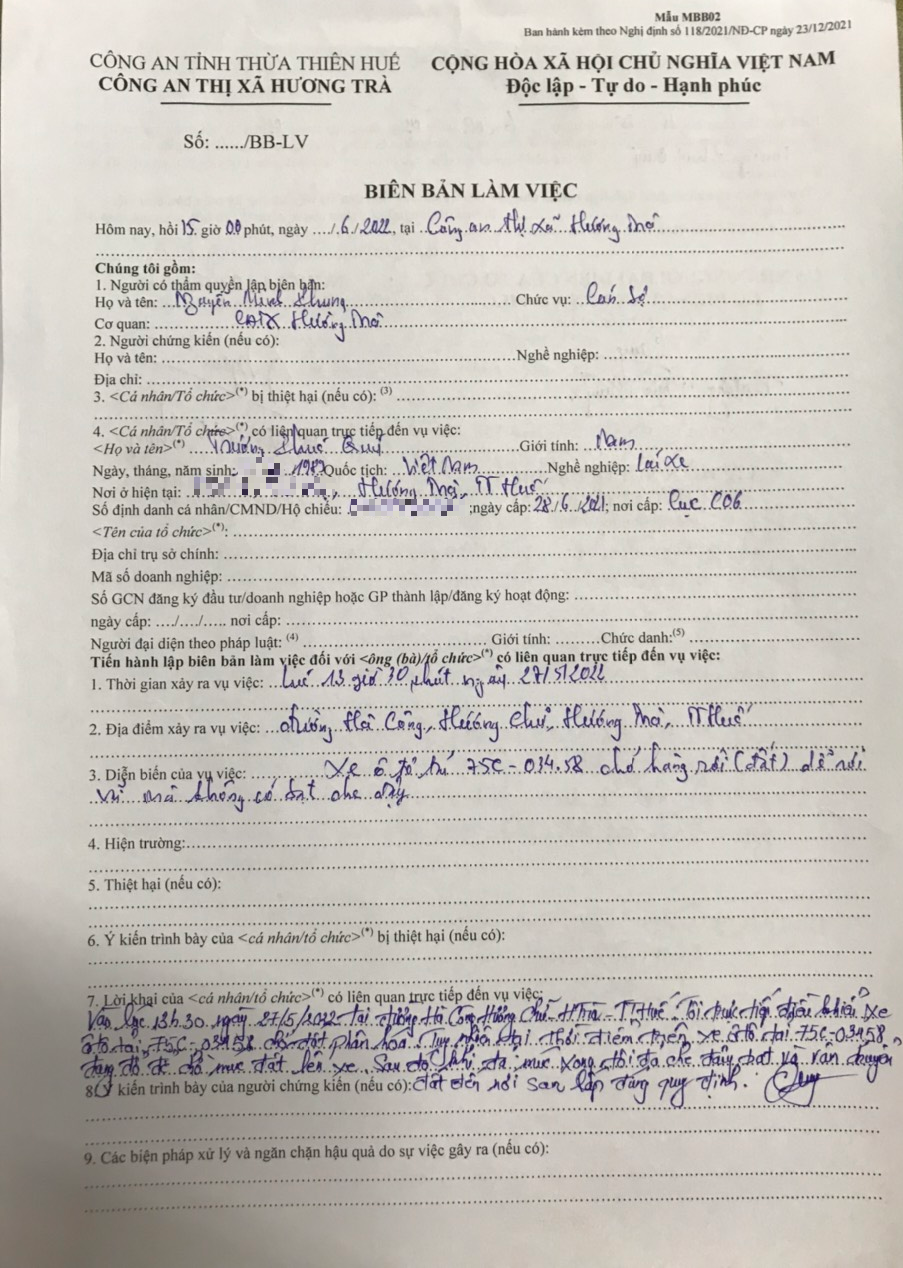 Mẫu MBB02
Ban hành kèm theo Nghị định số 118/2021/NĐ-CP ngày 23/12/2021
CÔNG AN TỈNH THỪA THIÊN HUẾ
CÔNG AN THỊ XÃ HƯƠNG TRÀ
CỘNG HÒA XÃ HỘI CHỦ NGHĨA VIỆT NAM
Độc lập - Tự do - Hạnh phúc
Số: ....../BB-LV
BIÊN BẢN LÀM VIỆC
Hôm nay, hồi 15 giờ 00 phút, ngày ..../.6./2022, tại Công an thị xã Hương Trà
Chúng tôi gồm:
1. Người có thẩm quyền lập biên bản:
Họ và tên: Nguyễn Minh Chức vụ: Cán bộ
Cơ quan: CATX Hương Trà
2. Người chứng kiến (nếu có):
Họ và tên: Nghề nghiệp:
Địa chỉ:
3. <Cá nhân/Tổ chức>(*) bị thiệt hại (nếu có): (3)
4. <Cá nhân/Tổ chức>(*) có liên quan trực tiếp đến vụ việc:
<Họ và tên>(*) Trương Quý Giới tính: Nam
Ngày, tháng, năm sinh: Quốc tịch: Việt Nam Nghề nghiệp: Lái xe
Nơi ở hiện tại: , Hương Trà, TT Huế
Số định danh cá nhân/CMND/Hộ chiếu: ;ngày cấp: 28./6./2021; nơi cấp: Cục C06
<Tên của tổ chức>(*):
Địa chỉ trụ sở chính:
Mã số doanh nghiệp:
Số GCN đăng ký đầu tư/doanh nghiệp hoặc GP thành lập/đăng ký hoạt động:
ngày cấp: ..../..../..... nơi cấp:
Người đại diện theo pháp luật: (4) Giới tính: Chức danh:(5)
Tiến hành lập biên bản làm việc đối với <ông (bà)/tổ chức>(*) có liên quan trực tiếp đến vụ việc:
1. Thời gian xảy ra vụ việc: Lúc 13 giờ 30 phút ngày 27/5/2022
2. Địa điểm xảy ra vụ việc: đường Hà Công, Hương Chữ, Hương Trà, TT Huế
3. Diễn biến của vụ việc: Xe ô tô tải 75C-034.58 chở hàng rời (đất) dễ rơi
vãi mà không có bạt che đậy
4. Hiện trường:
5. Thiệt hại (nếu có):
6. Ý kiến trình bày của <cá nhân/tổ chức>(*) bị thiệt hại (nếu có):
7. Lời khai của <cá nhân/tổ chức>(*) có liên quan trực tiếp đến vụ việc:
Vào lúc 13h.30 ngày 27/5/2022 tại đường Hà Công Hương Chữ - H.Trà - TT Huế. Tôi trực tiếp điều khiển xe
ô tô tải 75C-03458 chở đất phân hóa. Tuy nhiên tại thời điểm trên xe ô tô tải 75C-03458
đang đỗ để chờ múc đất lên xe. Sau đó khi đã múc xong thì đã che đậy bạt và vận chuyển
đất đến nơi san lấp đúng quy định.
8. Ý kiến trình bày của người chứng kiến (nếu có):
9. Các biện pháp xử lý và ngăn chặn hậu quả do sự việc gây ra (nếu có):